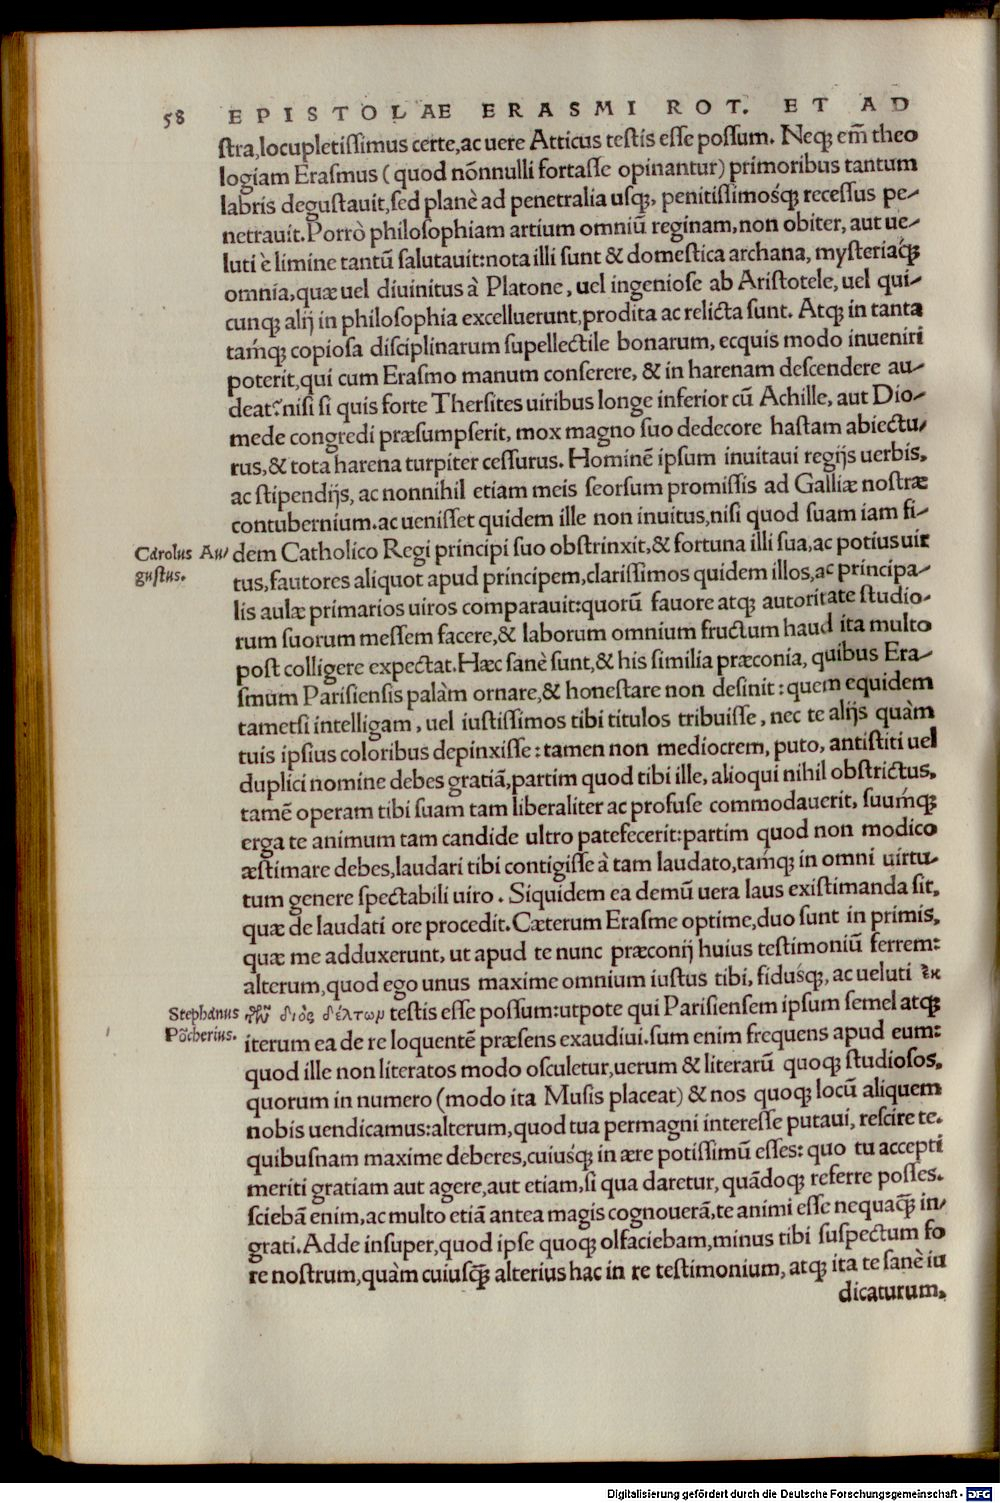 58 EPISTOLAE ERASMI ROT. ET AD
ſtra,locupletiſſimus certe,ac uere Atticus teſtis eſſe poſſum. Neqꝫ em̃ theo
logiam Eraſmus (quod nõnnulli fortaſſe opinantur) primoribus tantum
labris deguſtauit,ſed planè ad penetralia uſqꝫ, penitiſſimosq́ꝫ receſſus pe-
netrauit.Porrò philoſophiam artium omniũ reginam,non obiter, aut ue-
luti è limine tantũ ſalutauit:nota illi ſunt & domeſtica archana, myſteriaq́ꝫ
omnia,quæ uel diuinitus à Platone, uel ingenioſe ab Ariſtotele, uel qui-
cunqꝫ alij in philoſophia excelluerunt,prodita ac relicta ſunt. Atqꝫ in tanta
tamq́ꝫ copioſa diſciplinarum ſupellectile bonarum, ecquis modo inueniri
poterit,qui cum Eraſmo manum conſerere, & in harenam deſcendere au-
deat?niſi ſi quis forte Therſites uiribus longe inferior cũ Achille, aut Dio-
mede congredi præſumpſerit, mox magno ſuo dedecore haſtam abiectu-
rus,& tota harena turpiter ceſſurus. Hominẽ ipſum inuitaui regijs uerbis,
ac ſtipendijs, ac nonnihil etiam meis ſeorſum promiſſis ad Galliæ noſtræ
contubernium.ac ueniſſet quidem ille non inuitus,niſi quod ſuam iam fi-
Carolus Au-
guſtus.
dem Catholico Regi principi ſuo obſtrinxit,& fortuna illi ſua,ac potius uir
tus,fautores aliquot apud principem,clariſſimos quidem illos,ac principa-
lis aulæ primarios uiros comparauit:quorũ fauore atqꝫ autoritate ſtudio-
rum ſuorum meſſem facere,& laborum omnium fructum haud ita multo
poſt colligere expectat.Hæc ſanè ſunt,& his ſimilia præconia, quibus Era-
ſmum Pariſienſis palàm ornare,& honeſtare non deſinit: quem equidem
tametſi intelligam, uel iuſtiſſimos tibi titulos tribuiſſe, nec te alijs quàm
tuis ipſius coloribus depinxiſſe: tamen non mediocrem, puto, antiſtiti uel
duplici nomine debes gratiã,partim quod tibi ille, alioqui nihil obſtrictus,
tamẽ operam tibi ſuam tam liberaliter ac profuſe commodauerit, ſuumq́ꝫ
erga te animum tam candide ultro patefecerit:partim quod non modico
æſtimare debes,laudari tibi contigiſſe à tam laudato,tamq́ꝫ in omni uirtu-
tum genere ſpectabili uiro. Siquidem ea demũ uera laus exiſtimanda ſit,
quæ de laudati ore procedit.Cæterum Eraſme optime,duo ſunt in primis,
quæ me adduxerunt, ut apud te nunc præconij huius teſtimoniũ ferrem:
alterum,quod ego unus maxime omnium iuſtus tibi, fidusq́ꝫ, ac ueluti ἐκ
Stephanus
Põcherius.
τῶν διὸς δέλτων teſtis eſſe poſſum:utpote qui Pariſienſem ipſum ſemel atqꝫ
iterum ea de re loquentẽ præſens exaudiui.ſum enim frequens apud eum:
quod ille non literatos modo oſculetur,uerum & literarũ quoqꝫ ſtudioſos,
quorum in numero (modo ita Muſis placeat) & nos quoqꝫ locũ aliquem
nobis uendicamus:alterum,quod tua permagni intereſſe putaui, reſcire te,
quibuſnam maxime deberes,cuiusq́ꝫ in ære potiſſimũ eſſes: quo tu accepti
meriti gratiam aut agere,aut etiam,ſi qua daretur, quãdoqꝫ referre poſſes.
ſciebã enim,ac multo etiã antea magis cognouerã,te animi eſſe nequaqꝫ̃ in-
grati.Adde inſuper,quod ipſe quoqꝫ olfaciebam,minus tibi ſuſpectum fo
re noſtrum,quàm cuiuſqꝫ̃ alterius hac in re teſtimonium, atqꝫ ita te ſanè iu
dicaturum,
Digitalisierung gefördert durch die Deutsche Forschungsgemeinschaft - DFG